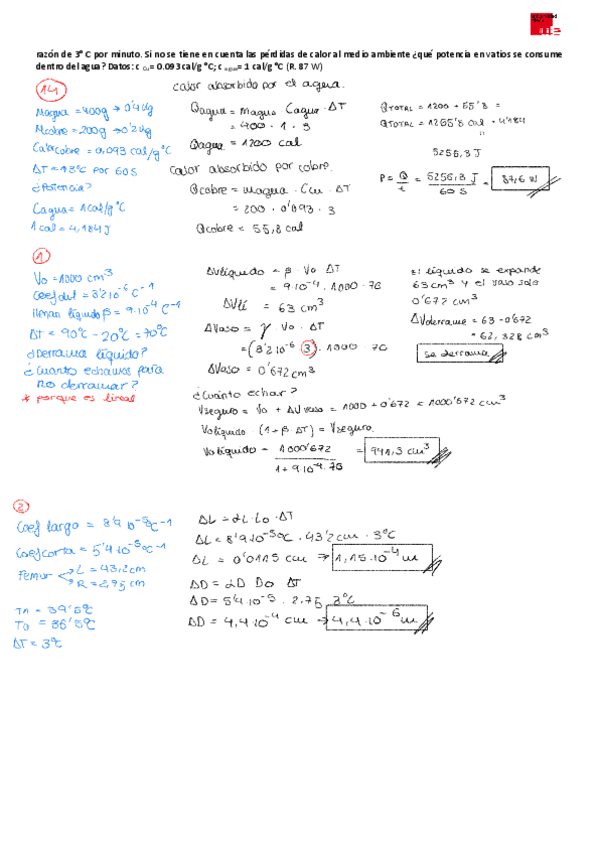 razón de 3° C por minuto. Si no se tiene en cuenta las pérdidas de calor al medio ambiente ¿qué potencia en vatios se consume
dentro del agua? Datos: c Cu= 0.093cal/g °C; c agua= 1 cal/g °C (R. 87 W)
14
Magua = 400g → 0'4kg
Mcobre = 200g → 0'2kg
Calor cobre = 0,093 cal/g°C
ΔT = 13°C por 60s
¿Potencia?
Cagua = 1cal/g°C
1cal = 4,184J
calor absorbido por el agua.
Qagua = magua · Cagua · ΔT
= 400 · 1 · 3
Qagua = 1200 cal
calor absorbido por cobre.
Qcobre = magua · Ccu · ΔT
= 200 · 0'093 · 3
Qcobre = 55,8 cal
QTOTAL = 1200 + 55'8 =
QTOTAL = 1255'8 cal · 4'184
"
5256,3 J
P = Q/t = 5256,3 J / 60 s = 87,6 W
1
Vo = 1000 cm³
Coef dil = 3'2·10⁻⁶ C⁻¹
líquido β = 9·10⁻⁴ C⁻¹
ΔT = 90°C - 20°C = 70°C
¿Derrama líquido?
¿Cuanto echamos para
no derramar?
* porque es lineal
ΔVlíquido = β · Vo · ΔT
= 9·10⁻⁴ · 1000 · 70
ΔVlí = 63 cm³
ΔVaso = γ · Vo · ΔT
= (3'2·10⁻⁶ · 3) · 1000 · 70
ΔVaso = 0'672cm³
¿Cuánto echar?
Vseguro = Vo + ΔVvaso = 1000 + 0'672 = 1000'672 cm³
Volíquido · (1 + β · ΔT) = Vseguro
Volíquido = 1000'672 / 1 + 9·10⁻⁴·70 = 941,3 cm³
El líquido se expande
63cm³ y el vaso solo
0'672 cm³
ΔVderrame = 63 - 0'672
= 62,328 cm³
Se derrama
2
Coef largo = 8'9·10⁻⁵ °C⁻¹
Coef corta = 5'4·10⁻⁵ °C⁻¹
Femur
L = 43,2cm
R = 2,75 cm
= 39'5°C
To = 36'5°C
ΔT = 3°C
ΔL = αL · Lo · ΔT
ΔL = 8'9·10⁻⁵ °C · 43'2cm · 3°C
ΔL = 0'0115 cm → 1,15·10⁻⁴ m
ΔD = αD · Do · ΔT
ΔD = 5'4·10⁻⁵ · 2,75 · 3°C
ΔD = 4,4·10⁻⁴ cm → 4,4·10⁻⁶ m